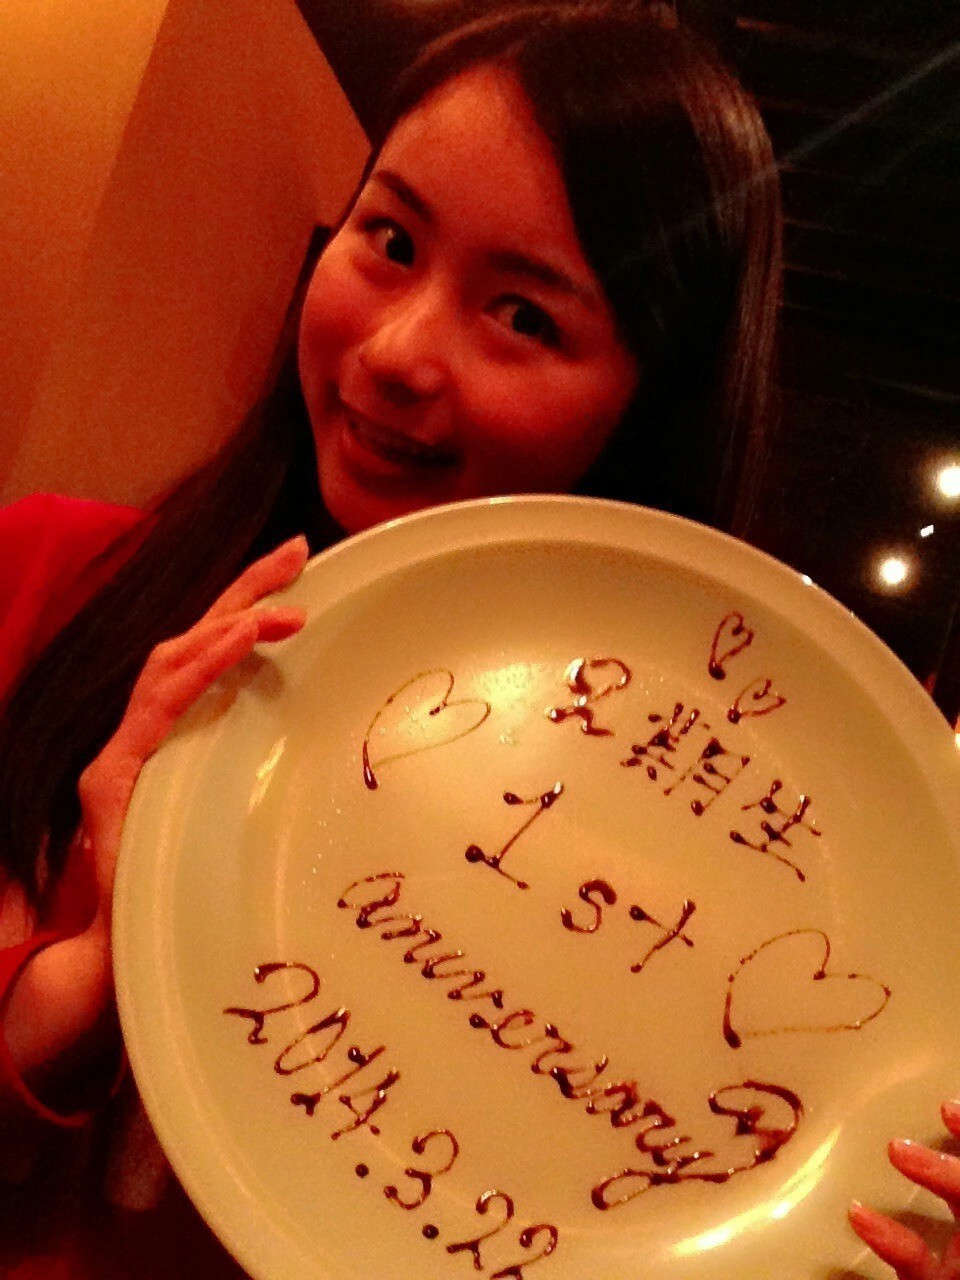 2期生
1st
anniversary
2014.3.22